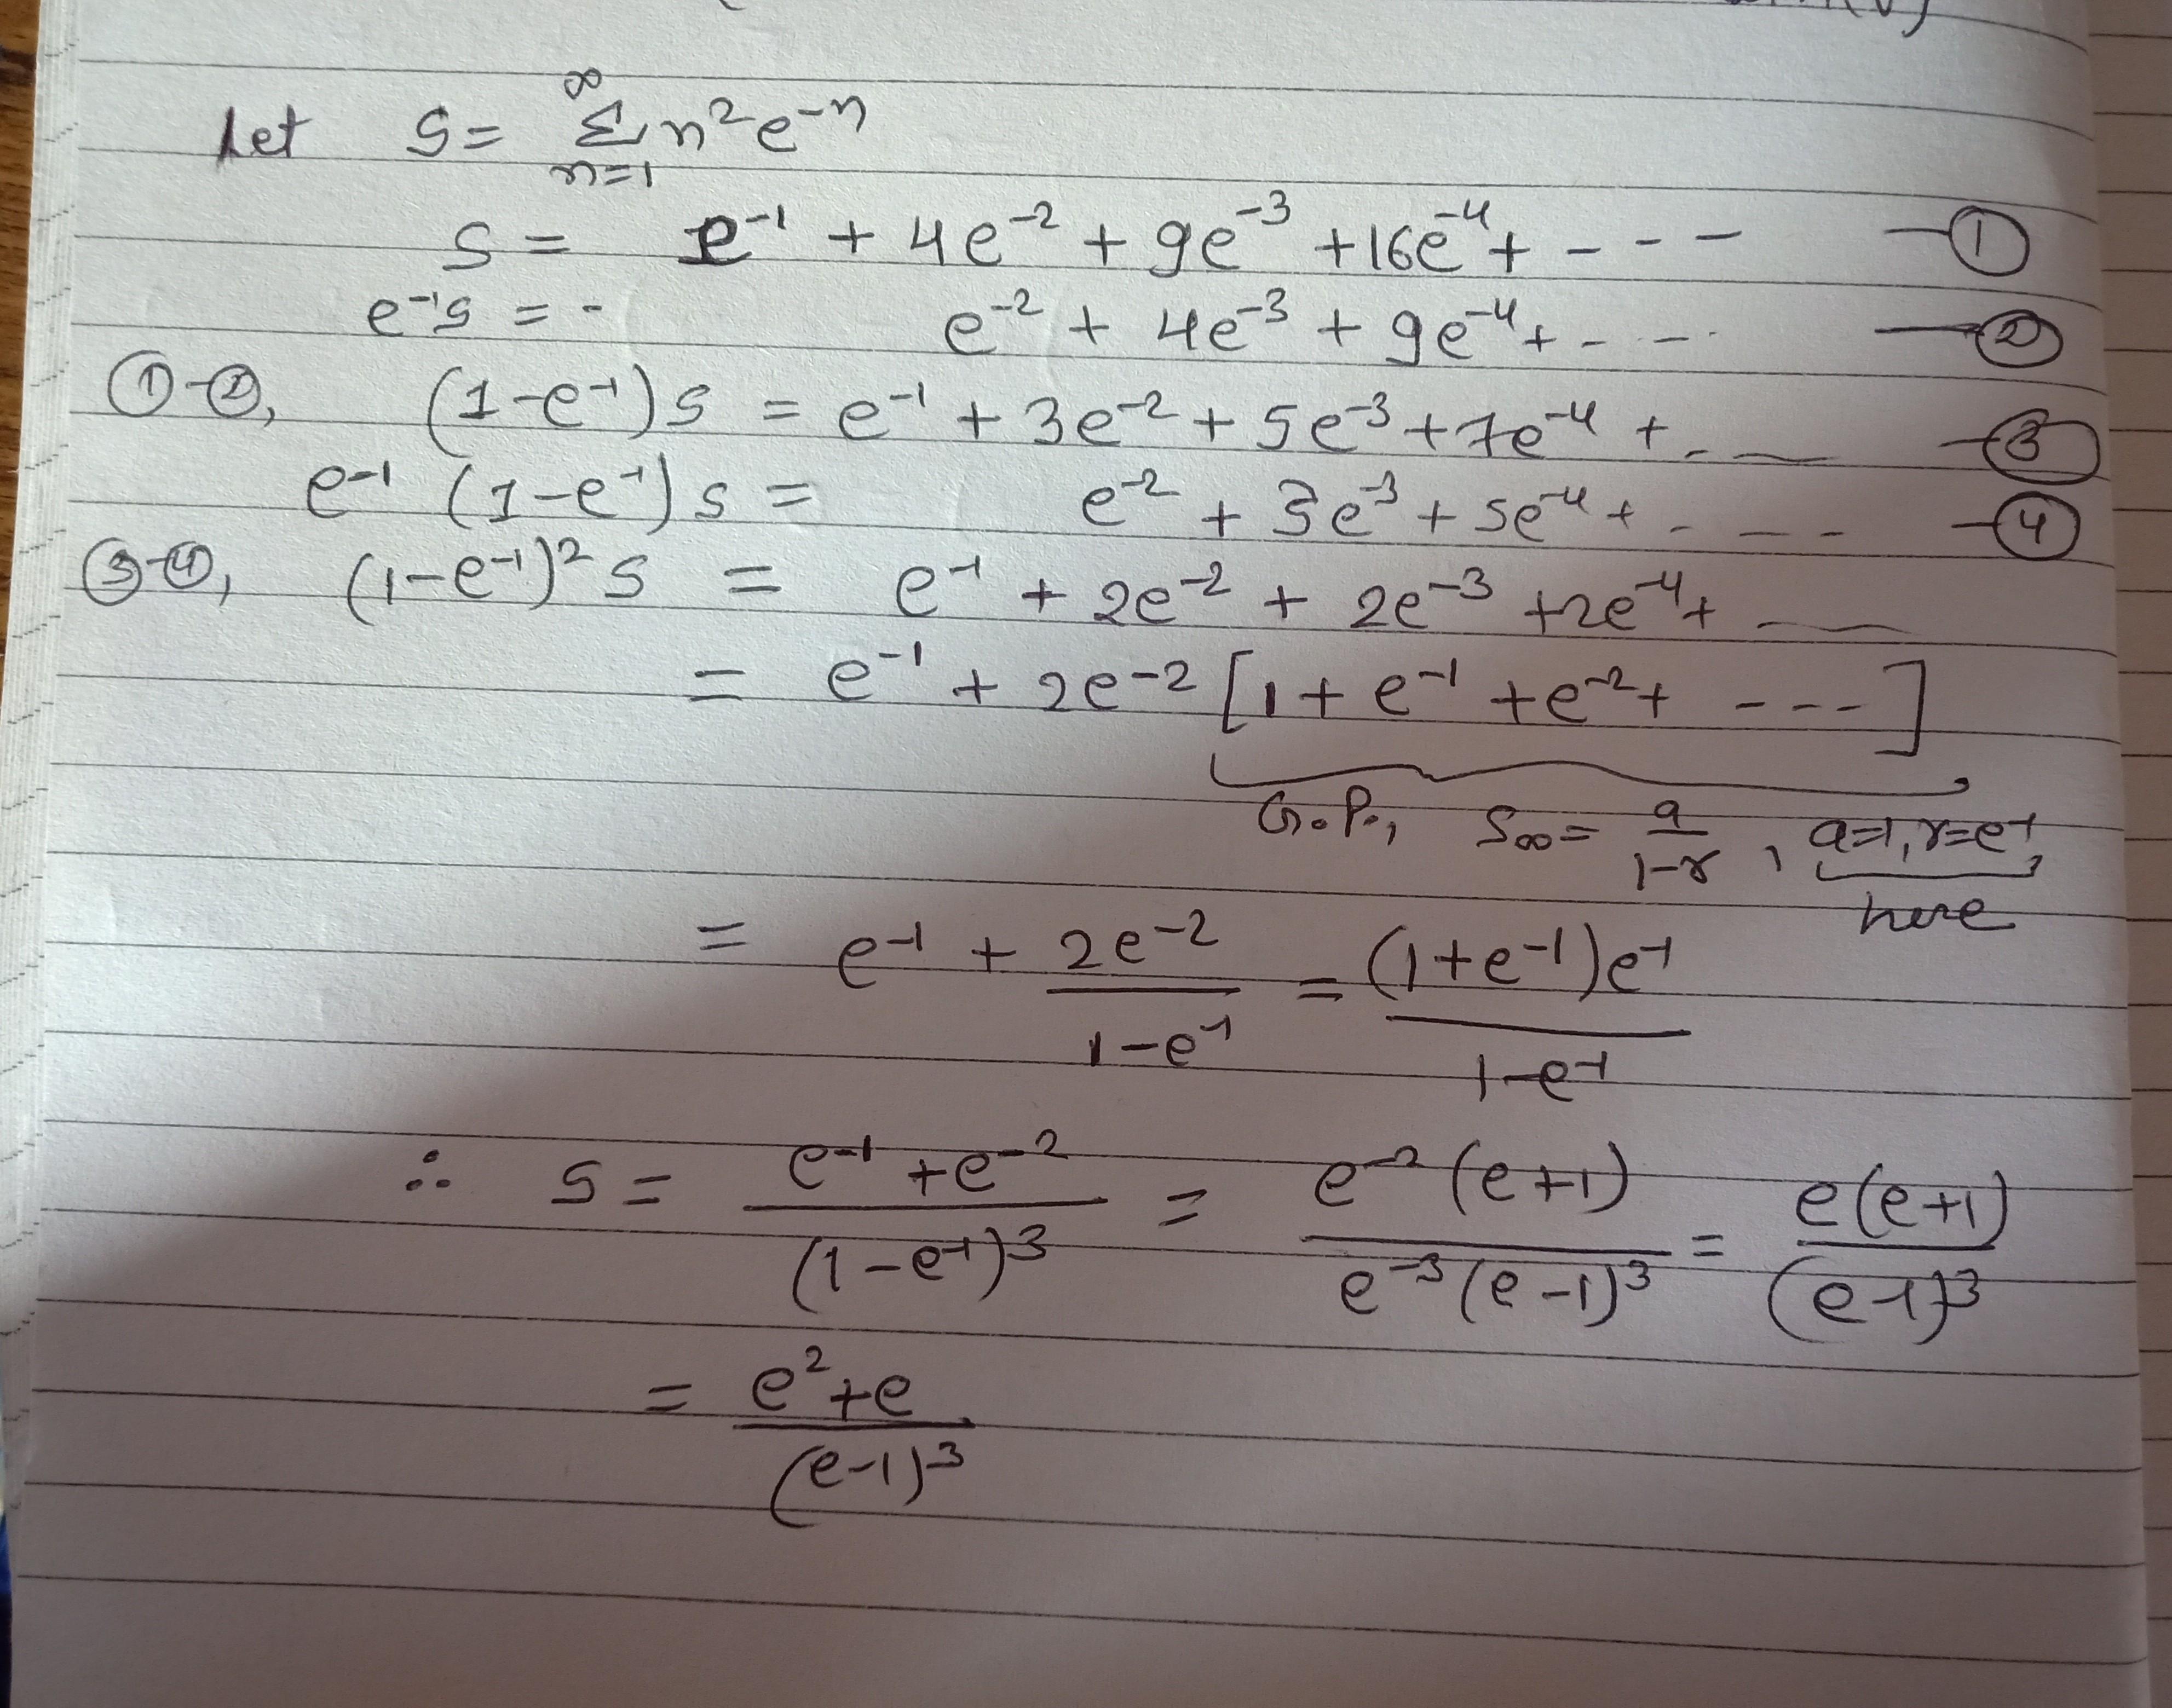 Let S = ∑_{n=1}^{∞} n² e^{-n}
S = e^{-1} + 4e^{-2} + 9e^{-3} + 16e^{-4} + - - - —①
e^{-1}S = - e^{-2} + 4e^{-3} + 9e^{-4} + - - - —②
①-②, (1-e^{-1})S = e^{-1} + 3e^{-2} + 5e^{-3} + 7e^{-4} + - — —③
e^{-1}(1-e^{-1})S = e^{-2} + 3e^{-3} + 5e^{-4} + - - - —④
③-④, (1-e^{-1})² S = e^{-1} + 2e^{-2} + 2e^{-3} + 2e^{-4} + —
= e^{-1} + 2e^{-2} [1 + e^{-1} + e^{-2} + - - - ]
G.P., S∞ = a/(1-r), a=1, r=e^{-1}, here
= e^{-1} + 2e^{-2}/(1-e^{-1}) = (1+e^{-1})e^{-1}/(1-e^{-1})
∴ S = (e^{-1}+e^{-2})/(1-e^{-1})³ = e^{-2}(e+1)/(e^{-3}(e-1)³) = e(e+1)/(e-1)³
= (e²+e)/(e-1)³